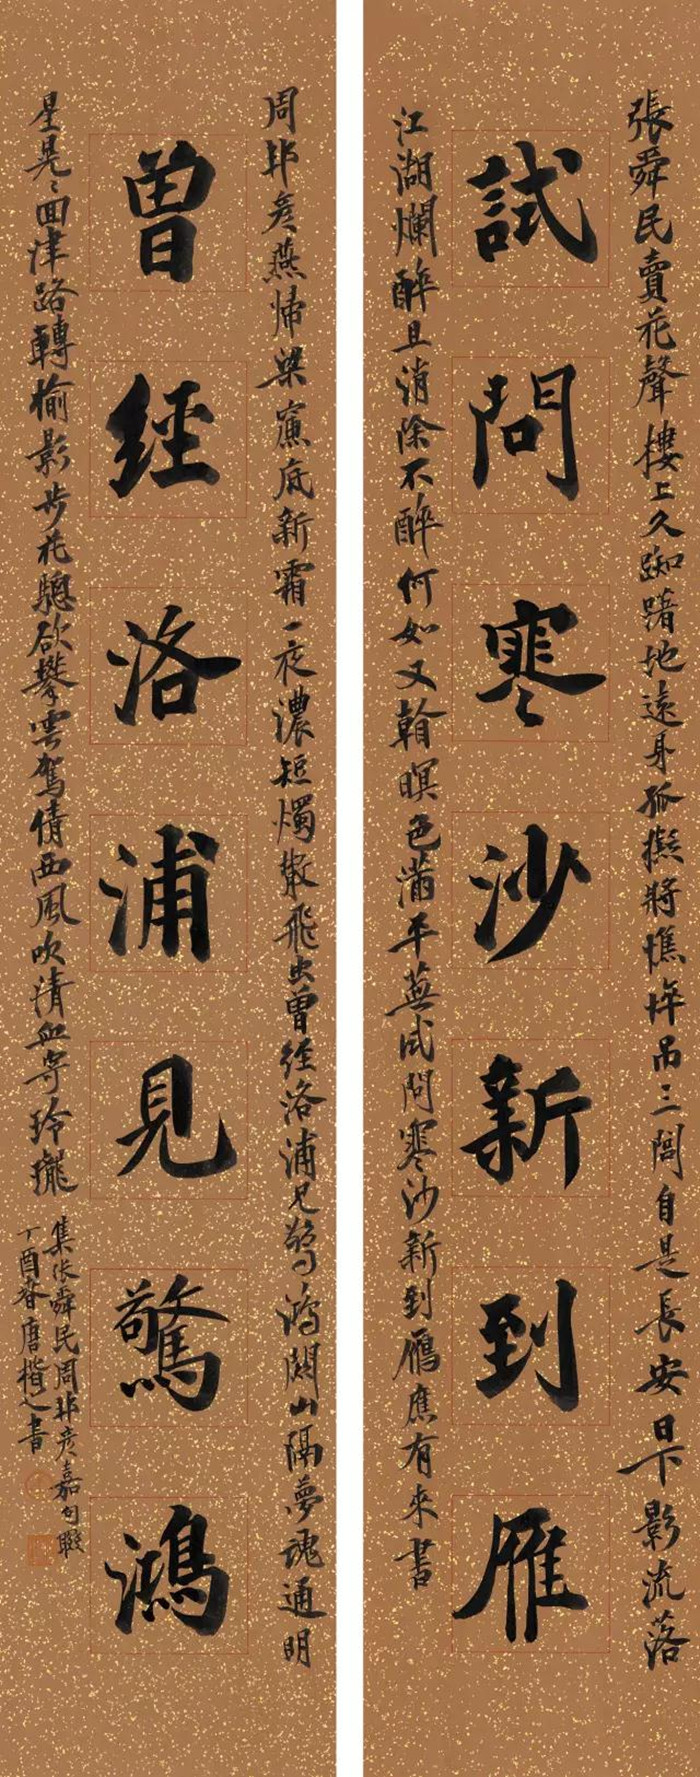 張舜民賣花聲樓上久踟躇地遠身孤擬將憔悴吊三閭自是長安日下影流落
試問寒沙新到雁
江湖爛醉且消除不醉何如又翰暝色滿平蕪試問寒沙新到鴈應有來書
周邦彥燕歸梁簾底新霜一夜濃短燭散飛虫曾經洛浦見驚鴻關山隔夢魂通明
曾經洛浦見驚鴻
星晃〻回津路轉榆影步花驄欲攀雲駕倩西風吹清血寄玲瓏
集張舜民周邦彥嘉句
丁酉春唐楷之書